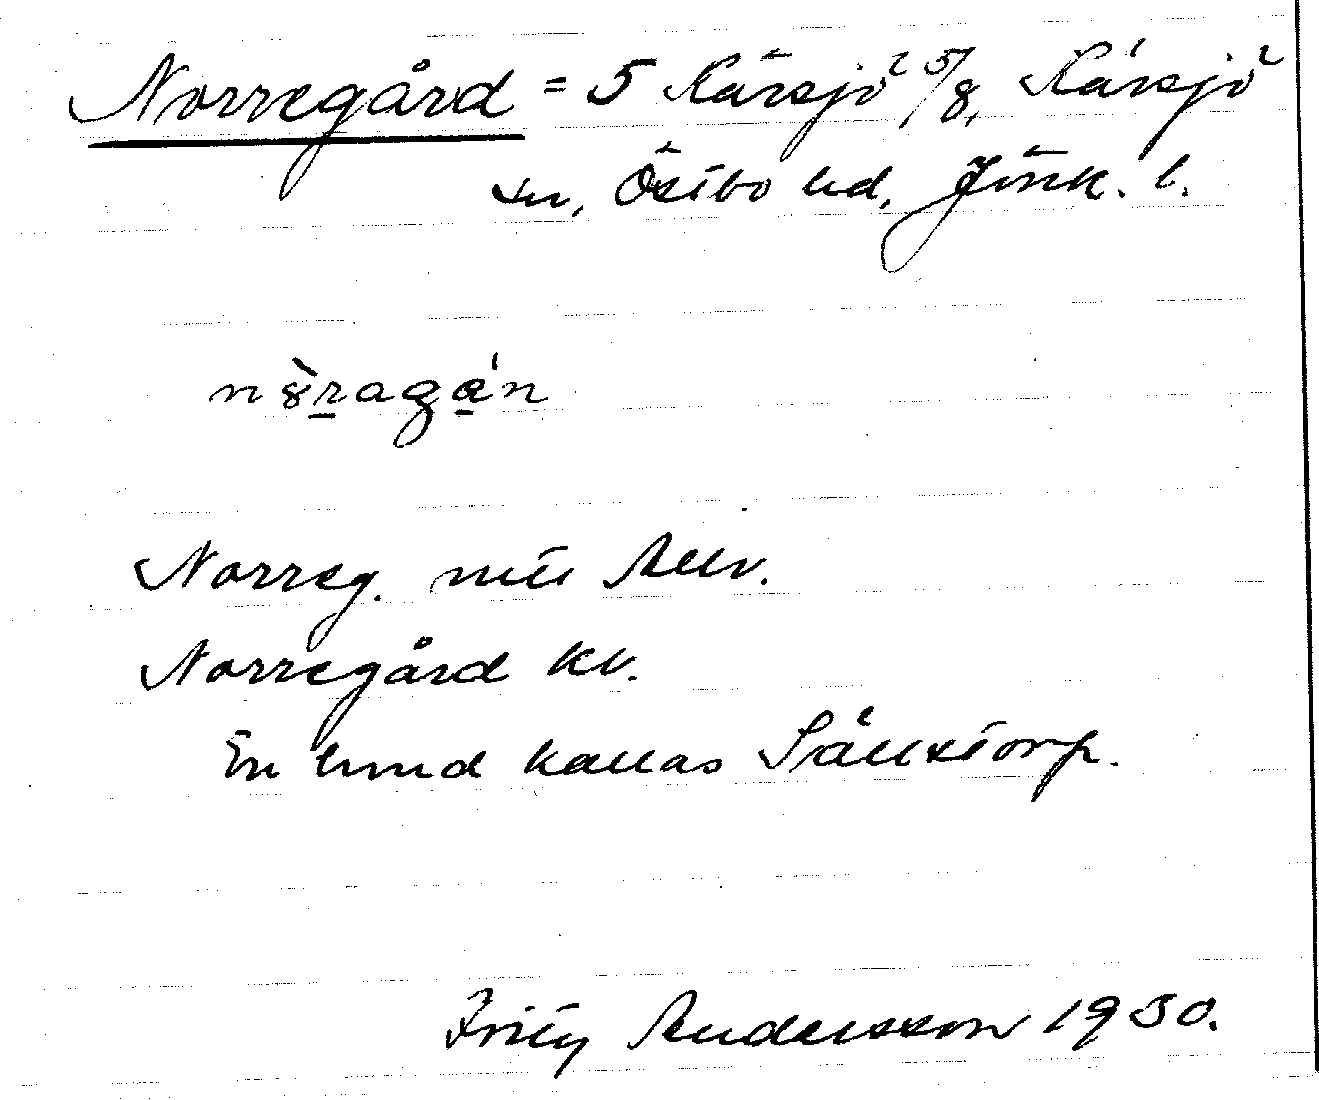 Norregård = 5 Kärsjö 5/8, Kärsjö
sn, Östbo hd, Jönk. l.
Norreg. mtl Allv.
Norregård kv.
En hmd kallas Sällstorp.
Fritz Andersson 1930.